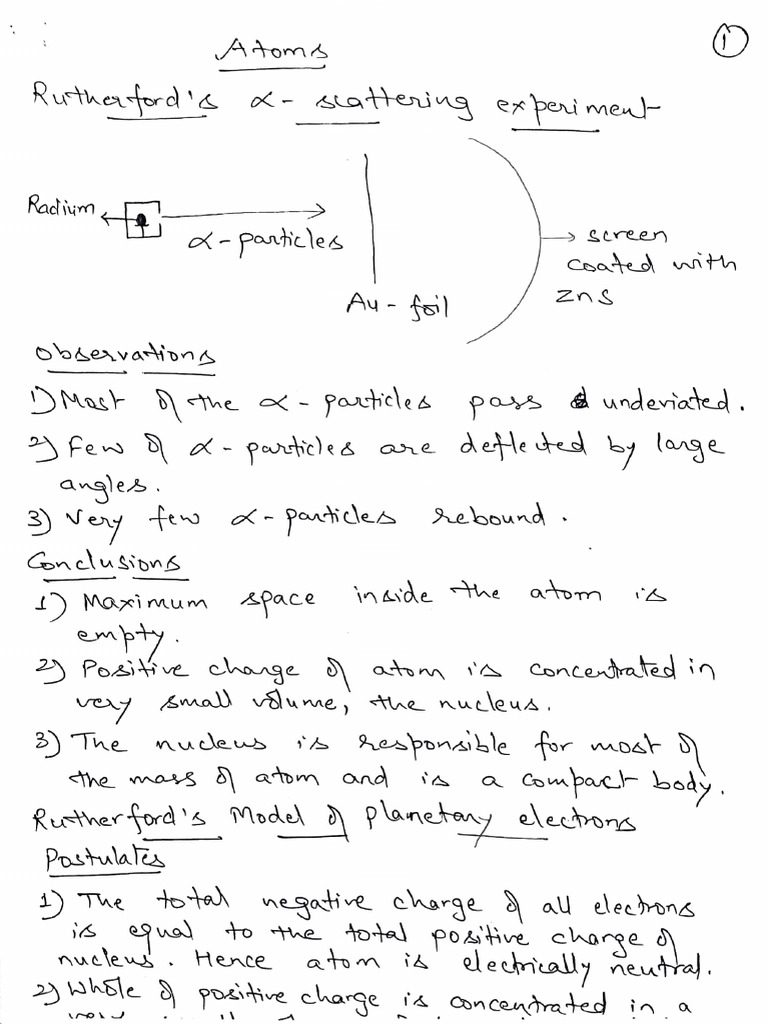 Atoms
1
Rutherford's α- scattering experiment
Radium
α-particles
Au-foil
screen
coated with
ZnS
Observations
1) Most of the α-particles pass undeviated.
2) Few of α-particles are deflected by large
angles.
3) Very few α-particles rebound.
Conclusions
1) Maximum space inside the atom is
empty.
2) Positive charge of atom is concentrated in
very small volume, the nucleus.
3) The nucleus is responsible for most of
the mass of atom and is a compact body.
Rutherford's Model of planetary electrons
Postulates
1) The total negative charge of all electrons
is equal to the total positive charge of
nucleus. Hence atom is electrically neutral.
2) Whole of positive charge is concentrated in a